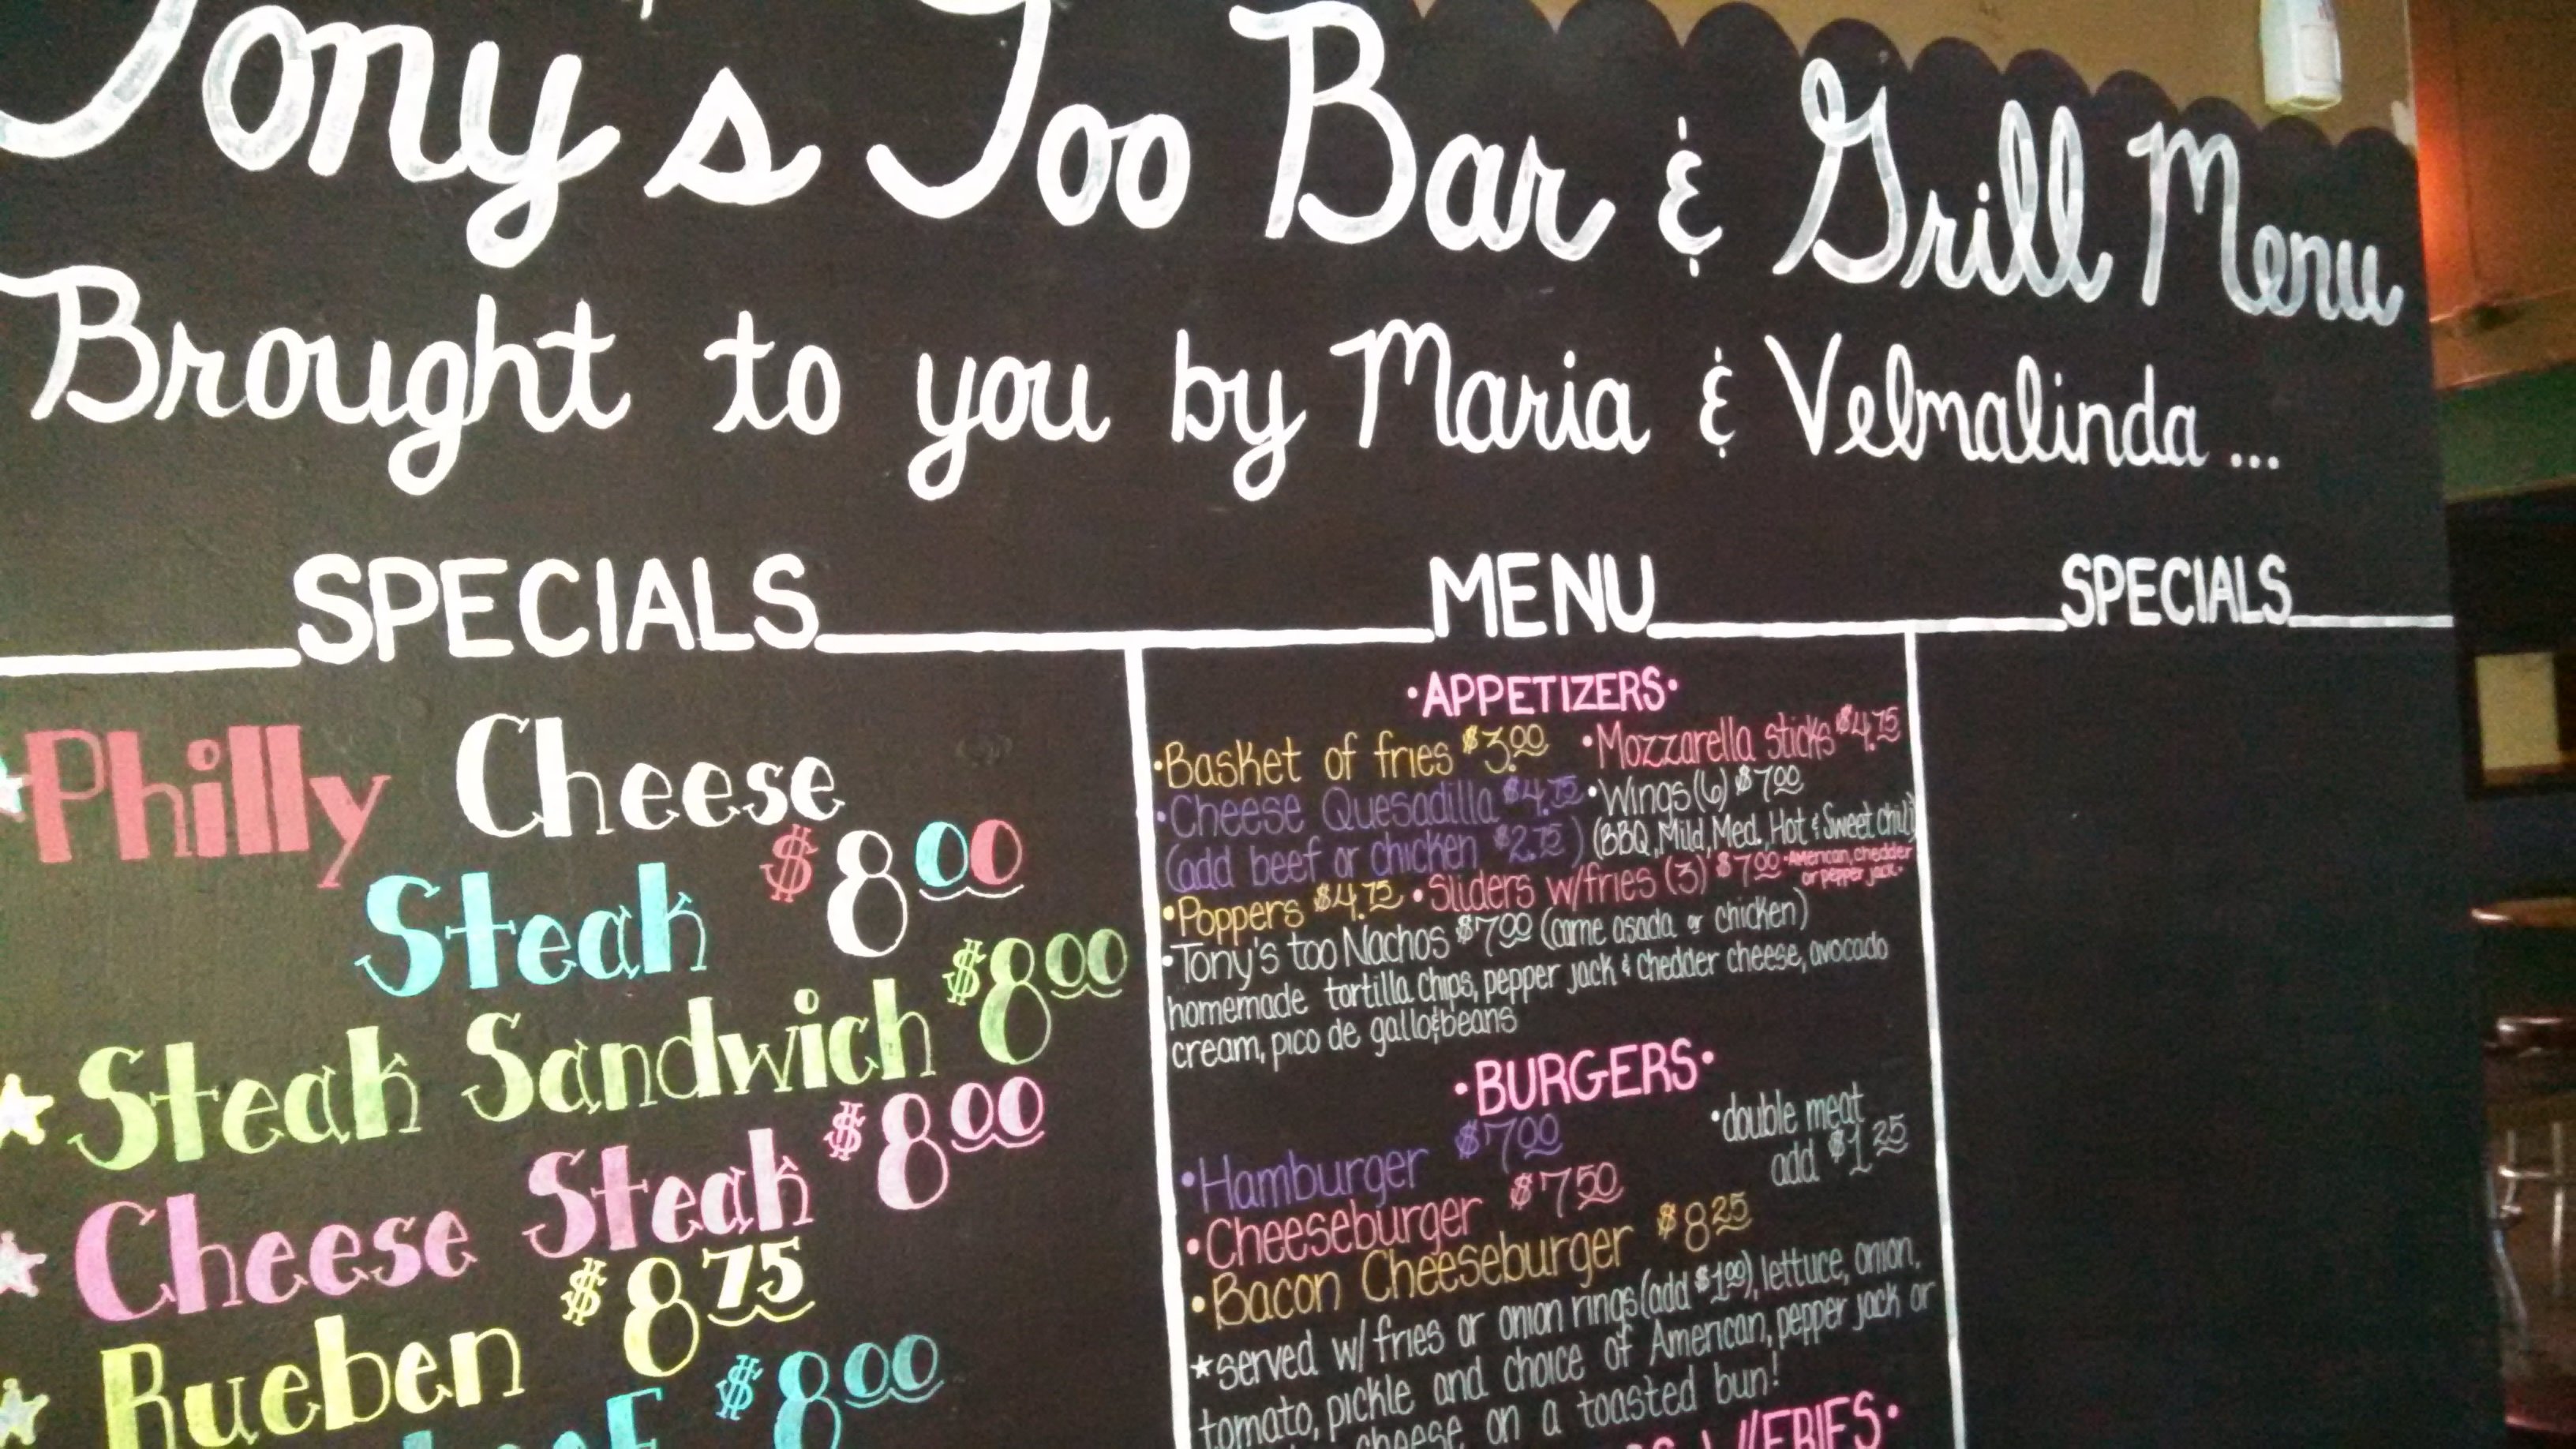 Tony's Too Bar & Grill Menu
Brought to you by Maria & Velmalinda...
SPECIALS
Philly Cheese
Steak $8.00
Steak Sandwich $8.00
Cheese Steak $8.00
Rueben $8.75
$8.00
MENU
•APPETIZERS•
•Basket of fries $3.00 •Mozzarella sticks $4.75
•Cheese Quesadilla $4.75 •Wings(6) $7.00
(add beef or chicken $2.75) (BBQ, Mild, Med., Hot & Sweet chili)
•Poppers $4.75 •Sliders w/fries (3) $7.00 •American, chedder
or pepper jack•
•Tony's too Nachos $7.00 (carne asada or chicken)
homemade tortilla chips, pepper jack & chedder cheese, avocado
cream, pico de gallo & beans
•BURGERS•
•Hamburger $7.00 •double meat
add $1.25
•Cheeseburger $7.50
•Bacon Cheeseburger $8.25
★served w/ fries or onion rings (add $1.00), lettuce, onion,
tomato, pickle and choice of American, pepper jack or
cheese on a toasted bun!
W/FRIES•
SPECIALS